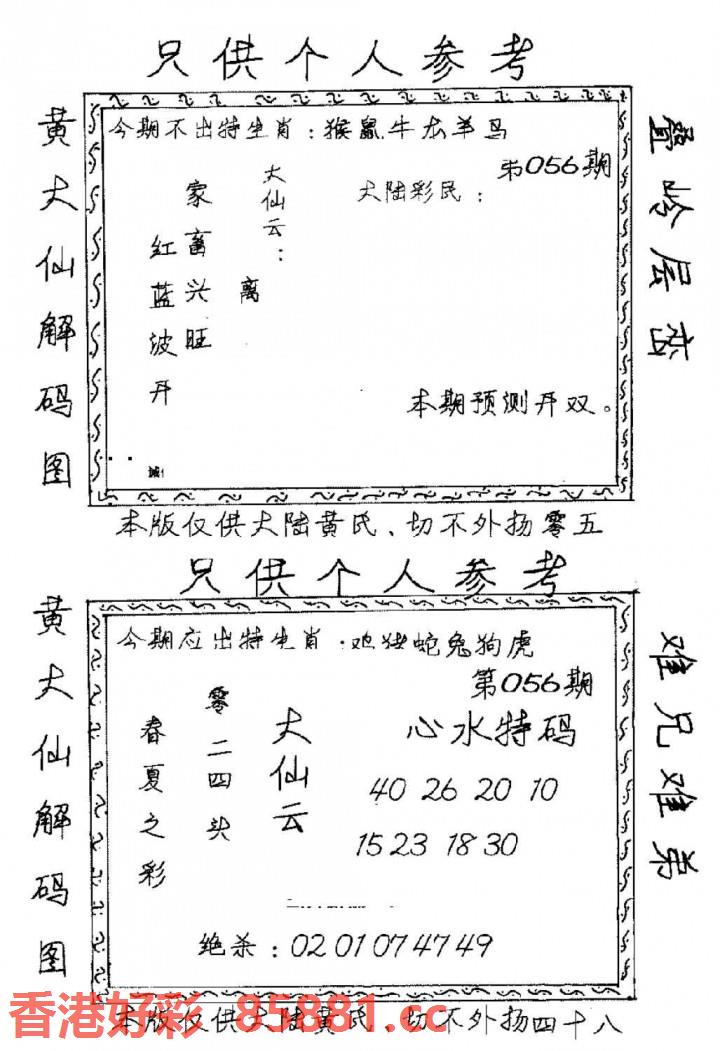 只供个人参考
黄大仙解码图
今期不出特生肖：猴鼠牛龙羊马
第056期
大陆彩民：
大仙云：
离
家畜兴旺
红蓝波开
本期预测开双。
叠岭层峦
本版仅供大陆黄氏、切不外扬零五
只供个人参考
黄大仙解码图
今期应出特生肖．鸡猪蛇兔狗虎
第056期
心水特码
40 26 20 10
15 23 18 30
大仙云
零二四头
春夏之彩
绝杀：02 01 07 47 49
难兄难弟
本版仅供大陆黄氏、切不外扬四十八
香港好彩 85881.cc